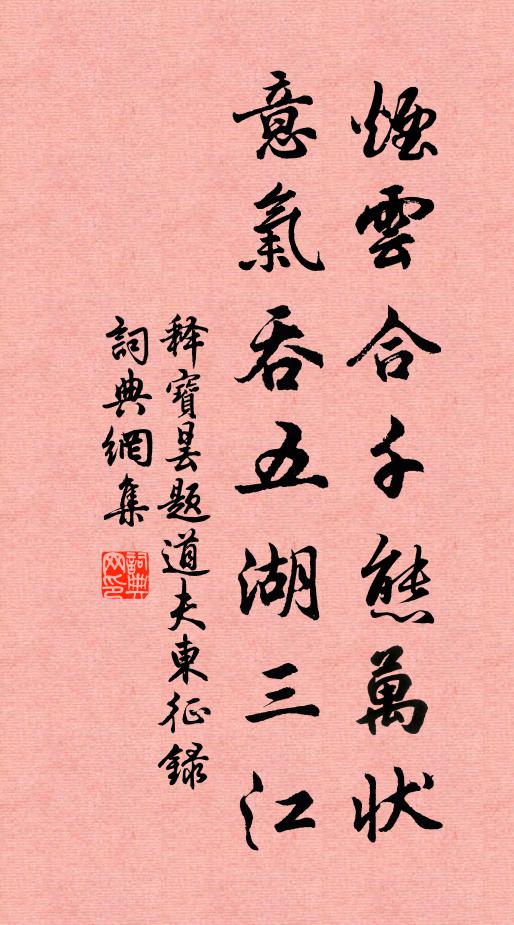 煙雲合千態萬狀
意氣吞五湖三江
释寶曇题道夫東征録
詞典網集
詞典網印